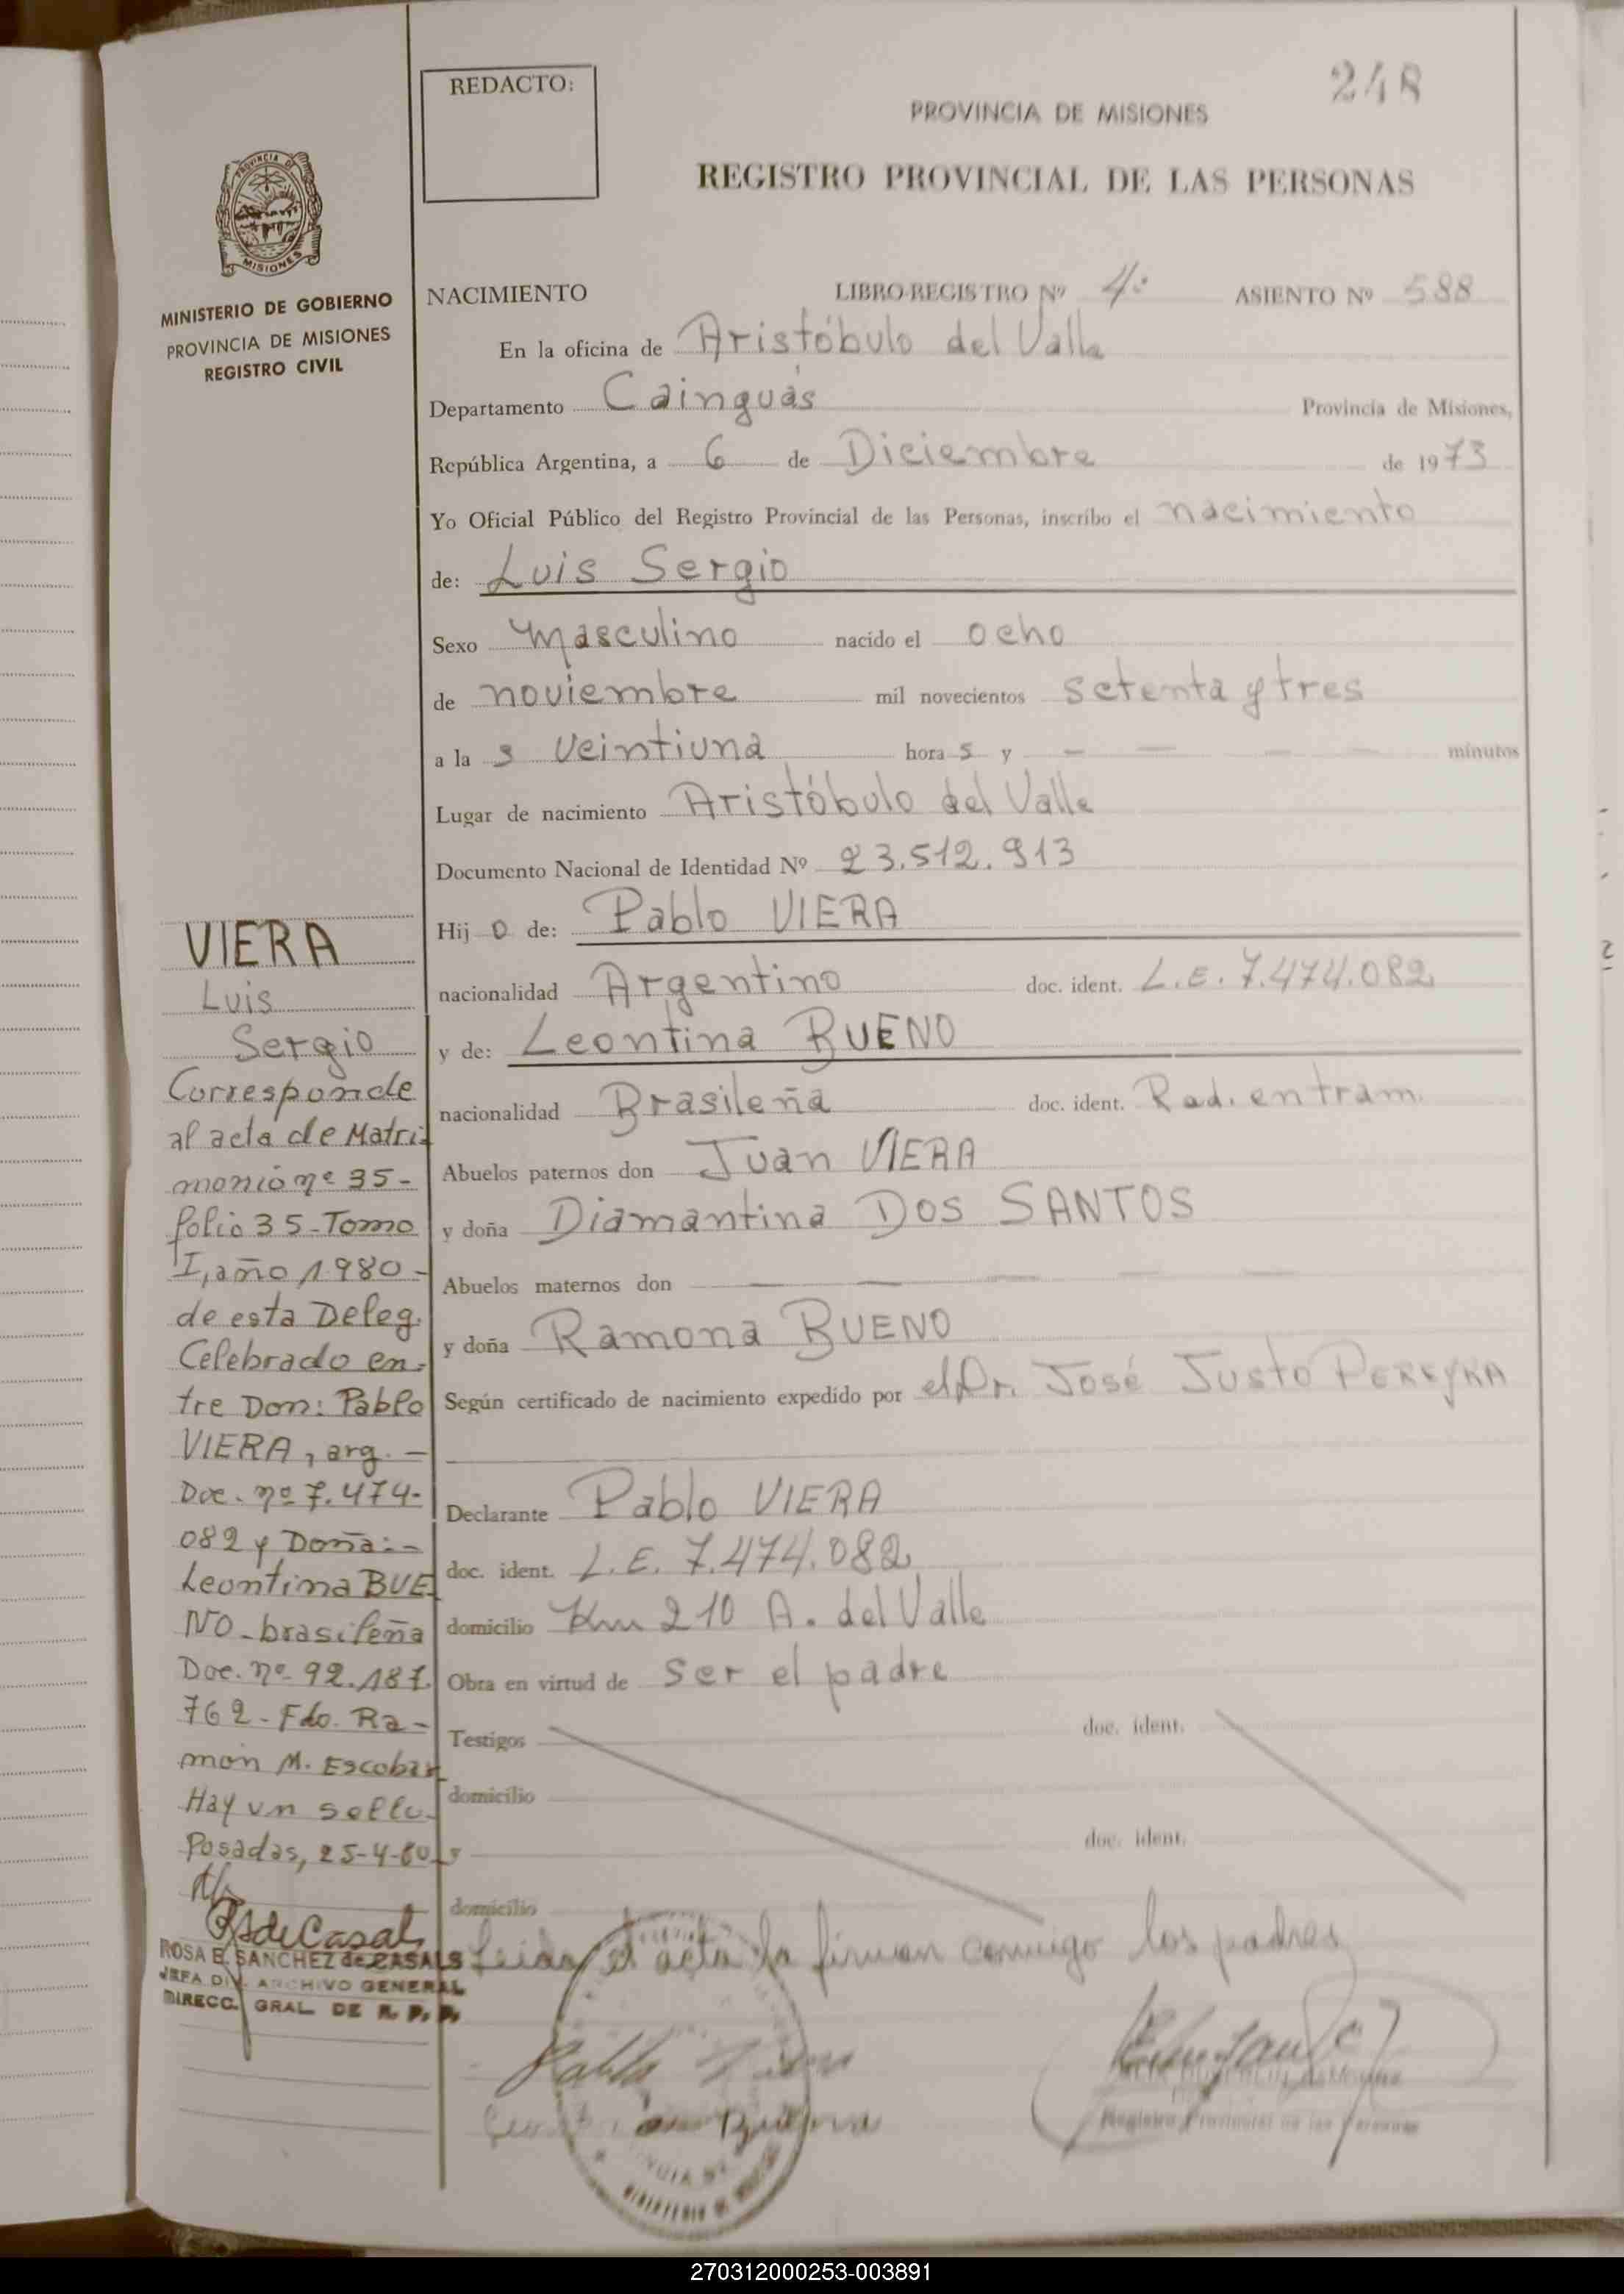 248
REDACTO:
PROVINCIA DE MISIONES
REGISTRO PROVINCIAL DE LAS PERSONAS
PROVINCIA DE
MISIONES
MINISTERIO DE GOBIERNO
PROVINCIA DE MISIONES
REGISTRO CIVIL
NACIMIENTO LIBRO-REGISTRO Nº 4º ASIENTO Nº 588
En la oficina de Aristóbulo del Valle
Departamento Cainguás Provincia de Misiones,
República Argentina, a 6 de Diciembre de 1973
Yo Oficial Público del Registro Provincial de las Personas, inscribo el nacimiento
de: Luis Sergio
Sexo Masculino nacido el ocho
de noviembre mil novecientos setenta y tres
a la s veintiuna hora s y — — — — minutos
Lugar de nacimiento Aristóbulo del Valle
Documento Nacional de Identidad Nº 23.512.913
Hij o de: Pablo VIERA
nacionalidad Argentino doc. ident. L.E. 7.474.082
y de: Leontina BUENO
nacionalidad Brasileña doc. ident. Rad. en tram.
Abuelos paternos don Juan VIERA
y doña Diamantina DOS SANTOS
Abuelos maternos don — — — — —
y doña Ramona BUENO
Según certificado de nacimiento expedido por el Dr. José Justo PEREYRA
Declarante Pablo VIERA
doc. ident. L.E. 7.474.082
domicilio Km 210 A. del Valle
Obra en virtud de ser el padre
Testigos doc. ident.
domicilio
doc. ident.
domicilio
Leida el acta la firman conmigo los padres
VIERA
Luis
Sergio
Corresponde
al acta de Matri-
monio nº 35-
folio 35-Tomo
I, año 1980-
de esta Deleg.
Celebrado en-
tre Don: Pablo
VIERA, arg. —
Doc. nº 7.474-
082 y Doña:-
Leontina BUE
NO-brasileña
Doc. nº 92.187.
762-Fdo. Ra-
mon M. Escobar
Hay un sello-
Posadas, 25-4-80
RSdeCasals
ROSA E. SANCHEZ de CASALS
JEFA DIV. ARCHIVO GENERAL
DIRECC. GRAL. DE R. P. P.
Pablo Viera
Bueno
Registro Provincial de las Personas
270312000253-003891